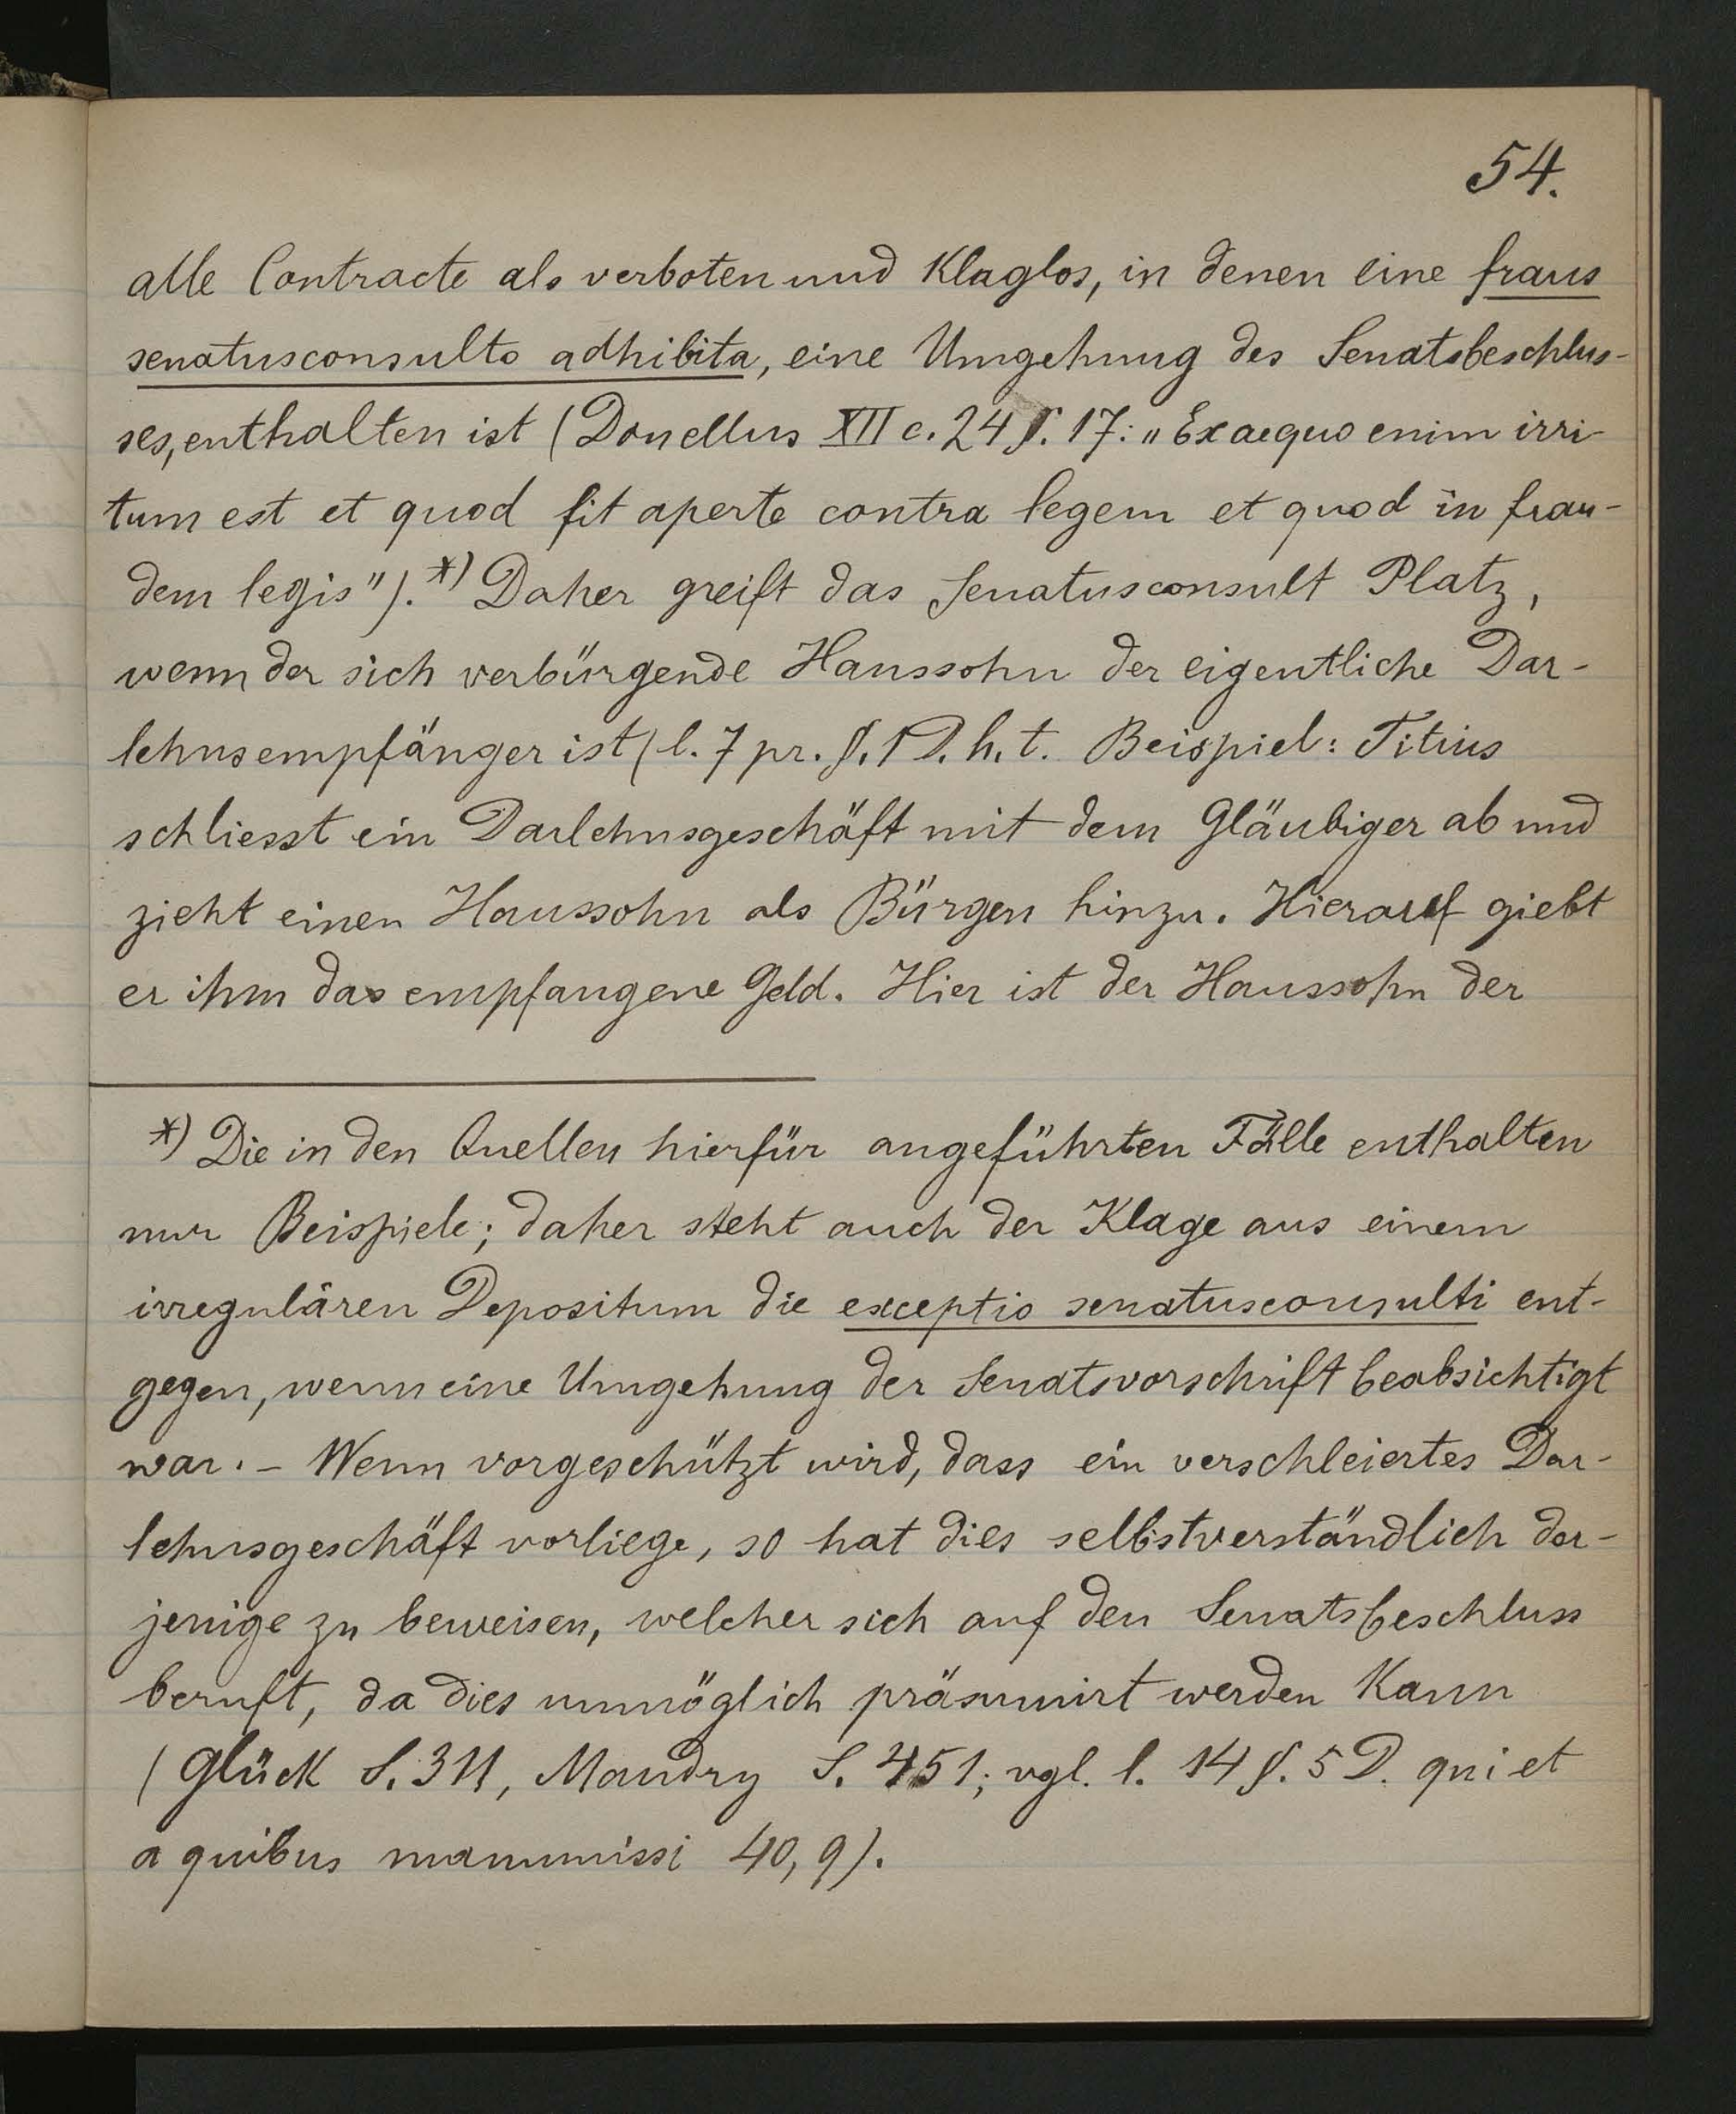 54.
alle Contracte als verboten und Klaglos, in denen eine fraus
senatusconsulto adhibita, eine Umgehung des Senatsbeschlus-
ses, enthalten ist (Donellus XII c. 24 §. 17: „Ex aequo enim irri-
tum est et quod fit aperte contra legem et quod in frau-
dem legis").*) Daher greift das Senatusconsult Platz,
wenn der sich verbürgende Haussohn der eigentliche Dar-
lehnsempfänger ist (l. 7 pr. §. 1 D. h. t. Beispiel: Titius
schliesst ein Darlehnsgeschäft mit dem Gläubiger ab und
zieht einen Haussohn als Bürgen hinzu. Hierauf giebt
er ihm das empfangene Geld. Hier ist der Haussohn der
*) Die in den Quellen hierfür angeführten Fälle enthalten
nur Beispiele; daher steht auch der Klage aus einem
irregulären Depositum die exceptio senatusconsulti ent-
gegen, wenn eine Umgehung der Senatsvorschrift beabsichtigt
war. – Wenn vorgeschützt wird, dass ein verschleiertes Dar-
lehnsgeschäft vorliege, so hat dies selbstverständlich der-
jenige zu beweisen, welcher sich auf den Senatsbeschluss
beruft, da dies unmöglich präsumirt werden Kann
(Glück S. 311, Mandry S. 451; vgl. l. 14 §. 5 D. qui et
a quibus manumissi 40, 9).